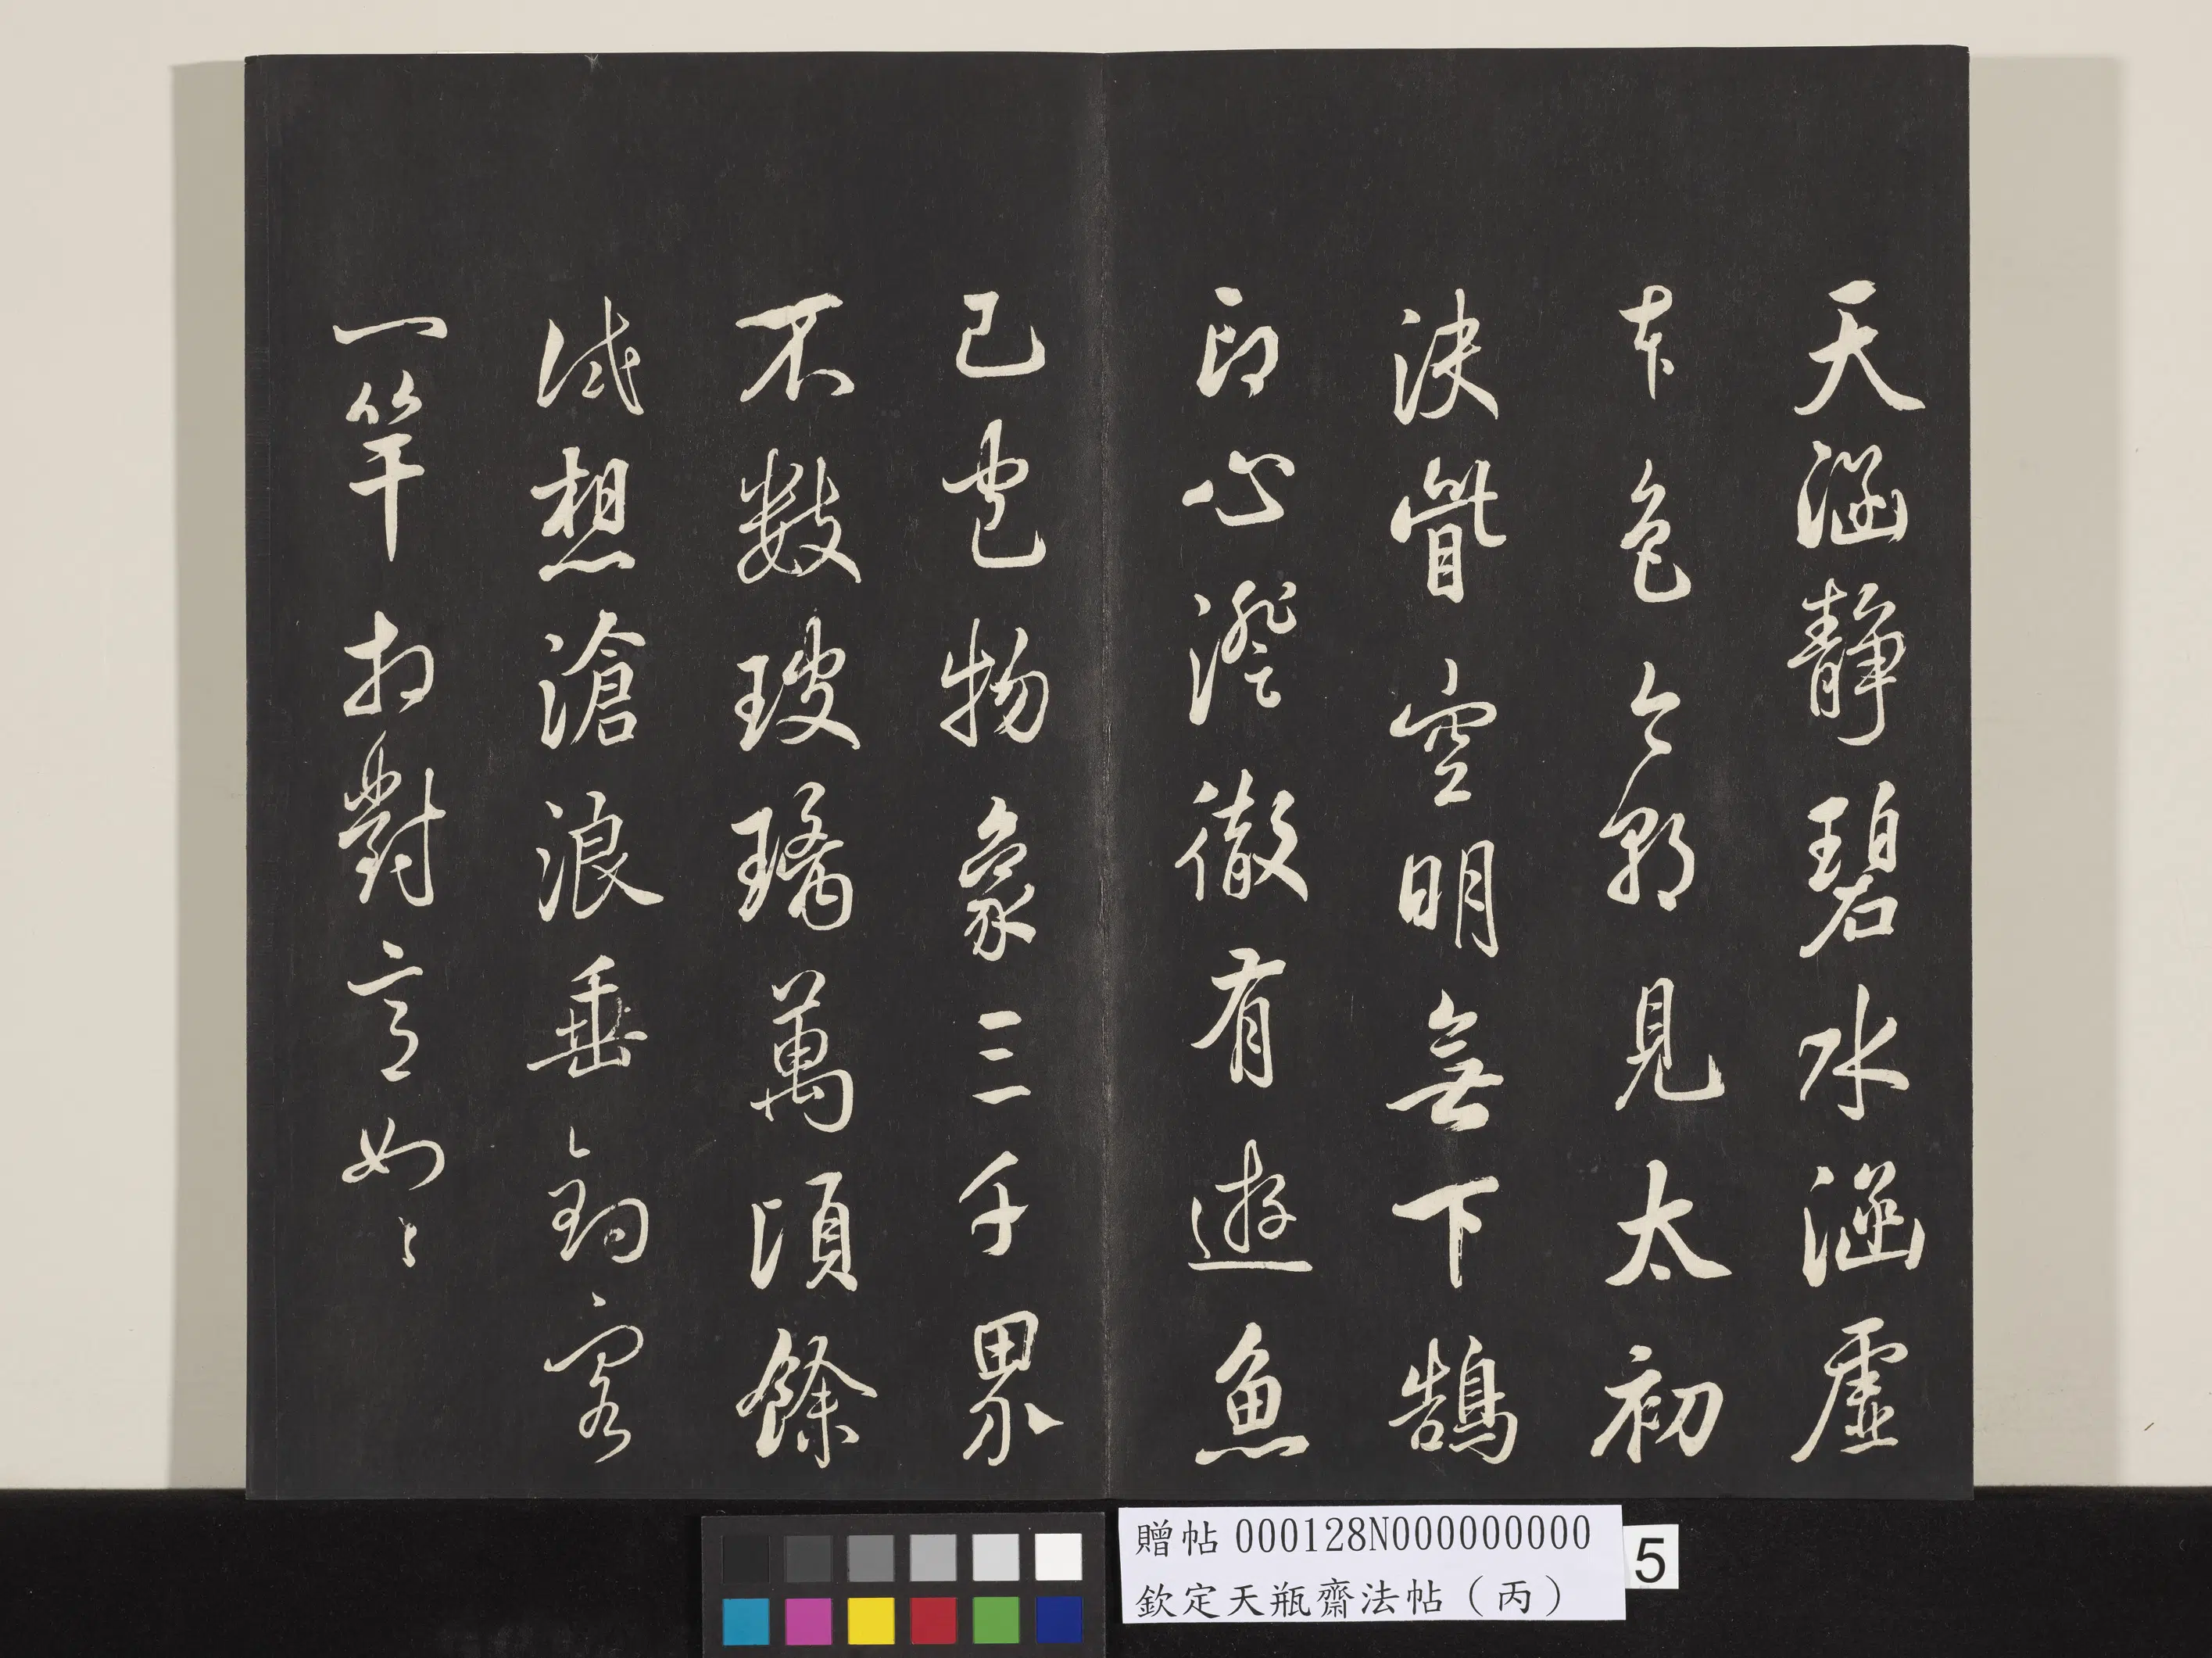 天涵靜碧水涵虛
本色今朝見太初
決眥空明無下鵠
印心澄徹有遊魚
已包物象三千界
不數玻璃萬頃餘
試想滄浪垂釣客
一竿相對意如〻
贈帖 000128N000000000
欽定天瓶齋法帖（丙）
5